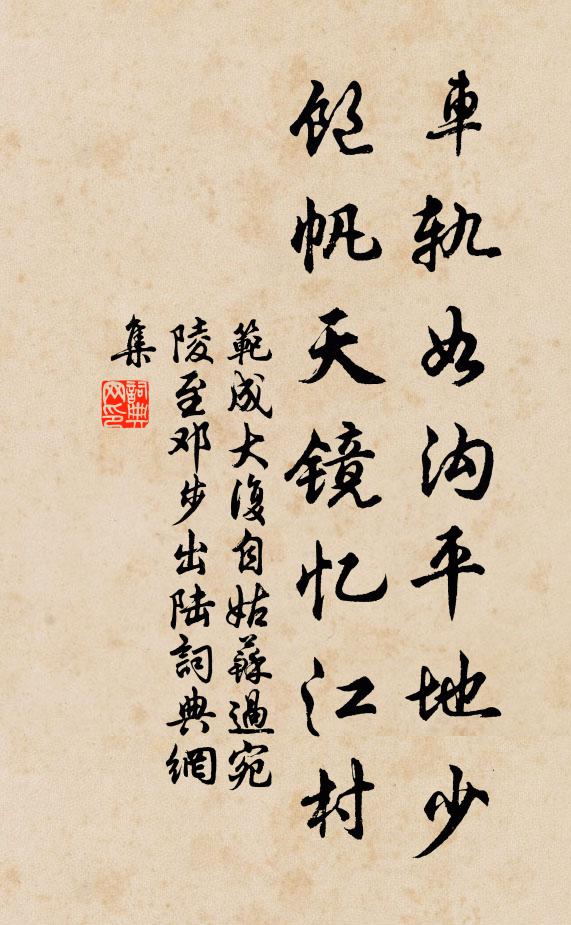 車軌如沟平地少
饱帆天镜忆江村
範成大復自姑蘇過宛
陵至邓步出陆詞典網
集
詞典網印